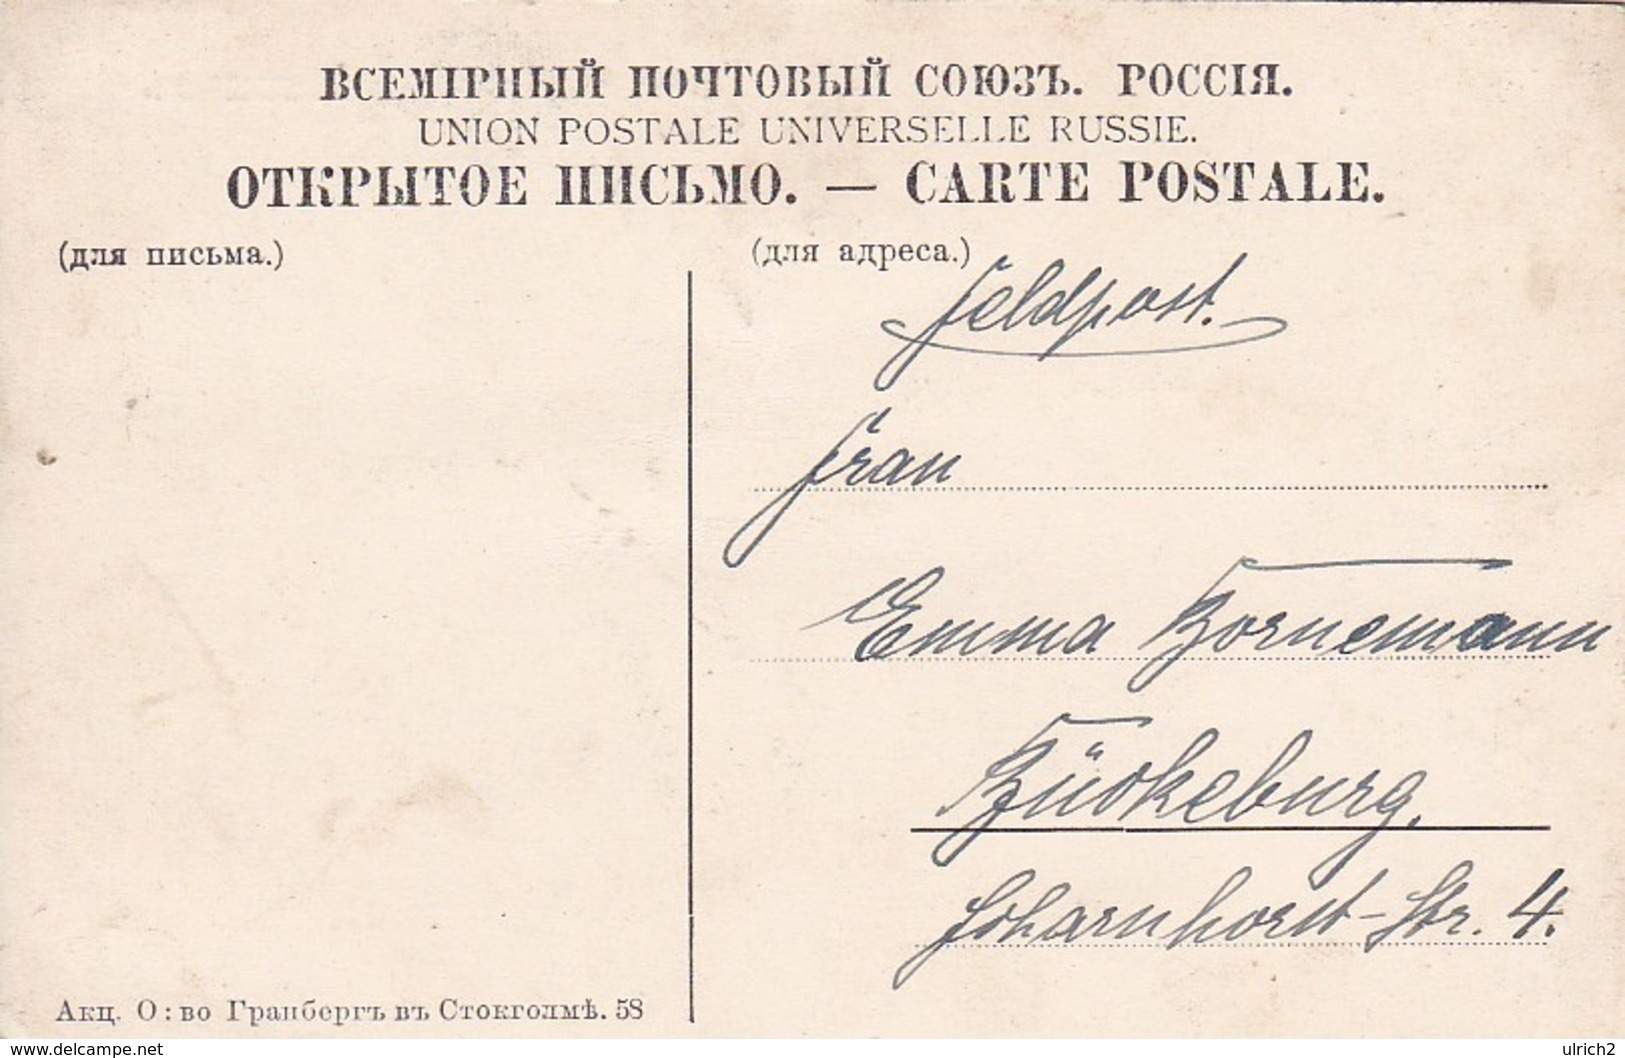 ВСЕМІРНЫЙ ПОЧТОВЫЙ СОЮЗЪ. РОССІЯ.
UNION POSTALE UNIVERSELLE RUSSIE.
ОТКРЫТОЕ ПИСЬМО. — CARTE POSTALE.
(для письма.)
(для адреса.)
Feldpost.
Frau
Emma Bornemann
Bückeburg.
Scharnhorst-Str. 4.
Акц. О:во Гранбергъ въ Стокголмѣ. 58
www.delcampe.net
ulrich2